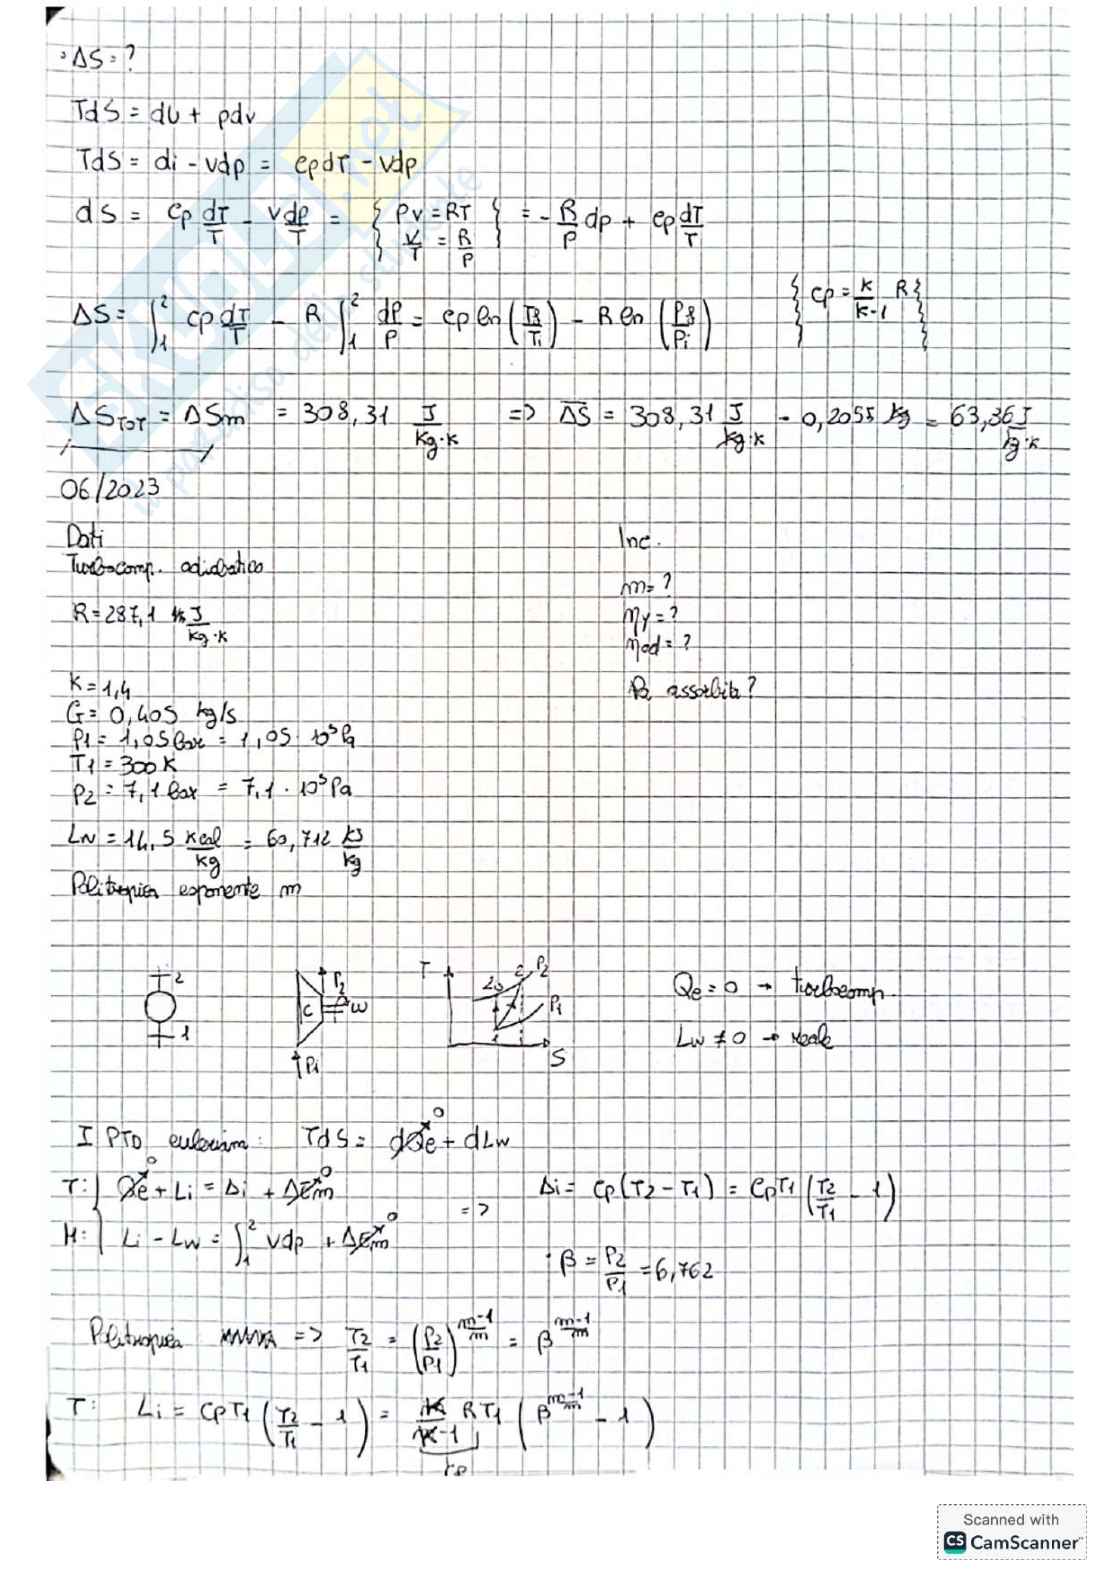 · ΔS = ?
TdS = dU + pdv
TdS = di - vdp = cpdT - vdp
dS = cp dT/T - vdp/T = { Pv = RT  v/T = R/P } = - R/P dp + cp dT/T
ΔS = ∫₁² cp dT/T - R ∫₁² dP/P = cp ln (T2/T1) - R ln (P2/P1) { cp = K/K-1 R }
ΔS TOT = ΔSm = 308,31 J/kg·K => ΔS = 308,31 J/kg·K · 0,2055 kg = 63,36 J/kg·K
06/2023
Dati
Inc.
Turbocomp. adiabatico
m = ?
R = 287,1 J/kg·K
ηy = ?
ηad = ?
K = 1,4
Pa assorbita?
G = 0,405 kg/s
P1 = 1,05 bar = 1,05 · 10⁵ Pa
T1 = 300 K
P2 = 7,1 bar = 7,1 · 10⁵ Pa
Lw = 14,5 Kcal/kg = 60,712 kJ/kg
Politropica esponente m
2
1
P2
C
ω
P1
T
2s
2
P2
P1
1
S
Qe = 0 → turbocomp.
Lw ≠ 0 → reale
I PTD euleriam: TdS = dQe⁰ + dLw
T: Qe⁰ + Li = Δi + ΔEm⁰ => Δi = cp(T2 - T1) = cpT1 (T2/T1 - 1)
M: Li - Lw = ∫₁² vdp + ΔEm⁰
· β = P2/P1 = 6,762
Politropica => T2/T1 = (P2/P1)^(m-1/m) = β^(m-1/m)
T: Li = cpT1 (T2/T1 - 1) = K/K-1 RT1 (β^(m-1/m) - 1)
cp
Scanned with
CS CamScanner